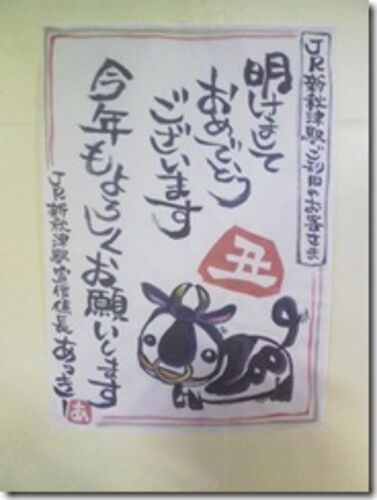 JR新秋津駅ご利用のお客さま
明けまして
おめでとう
ございます
今年もよろしくお願いします
丑
JR新秋津駅宣伝係長
あつき
あ